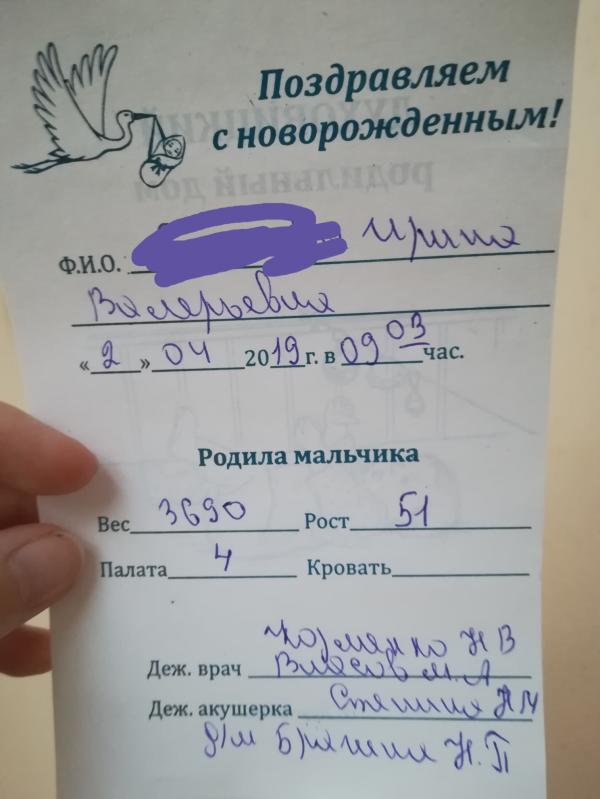 Поздравляем
с новорожденным!
Ф.И.О. Ирина
Валерьевна
«2» 04 2019 г. в 09 03 час.
Родила мальчика
Вес 3690 Рост 51
Палата 4 Кровать
Н В
Деж. врач Власов М.А
Деж. акушерка
Н.П